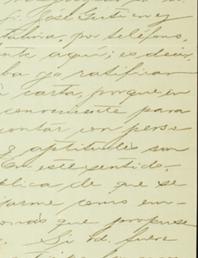 José Gutierrez
por teléfono,
aquí; es decir,
ba yo ratificar
carta, porque en
conveniente para
contar con perso
y aptitudes sun
En este sentido
plica de que se
forme como em-
más que propuse
Si Ud. fuere